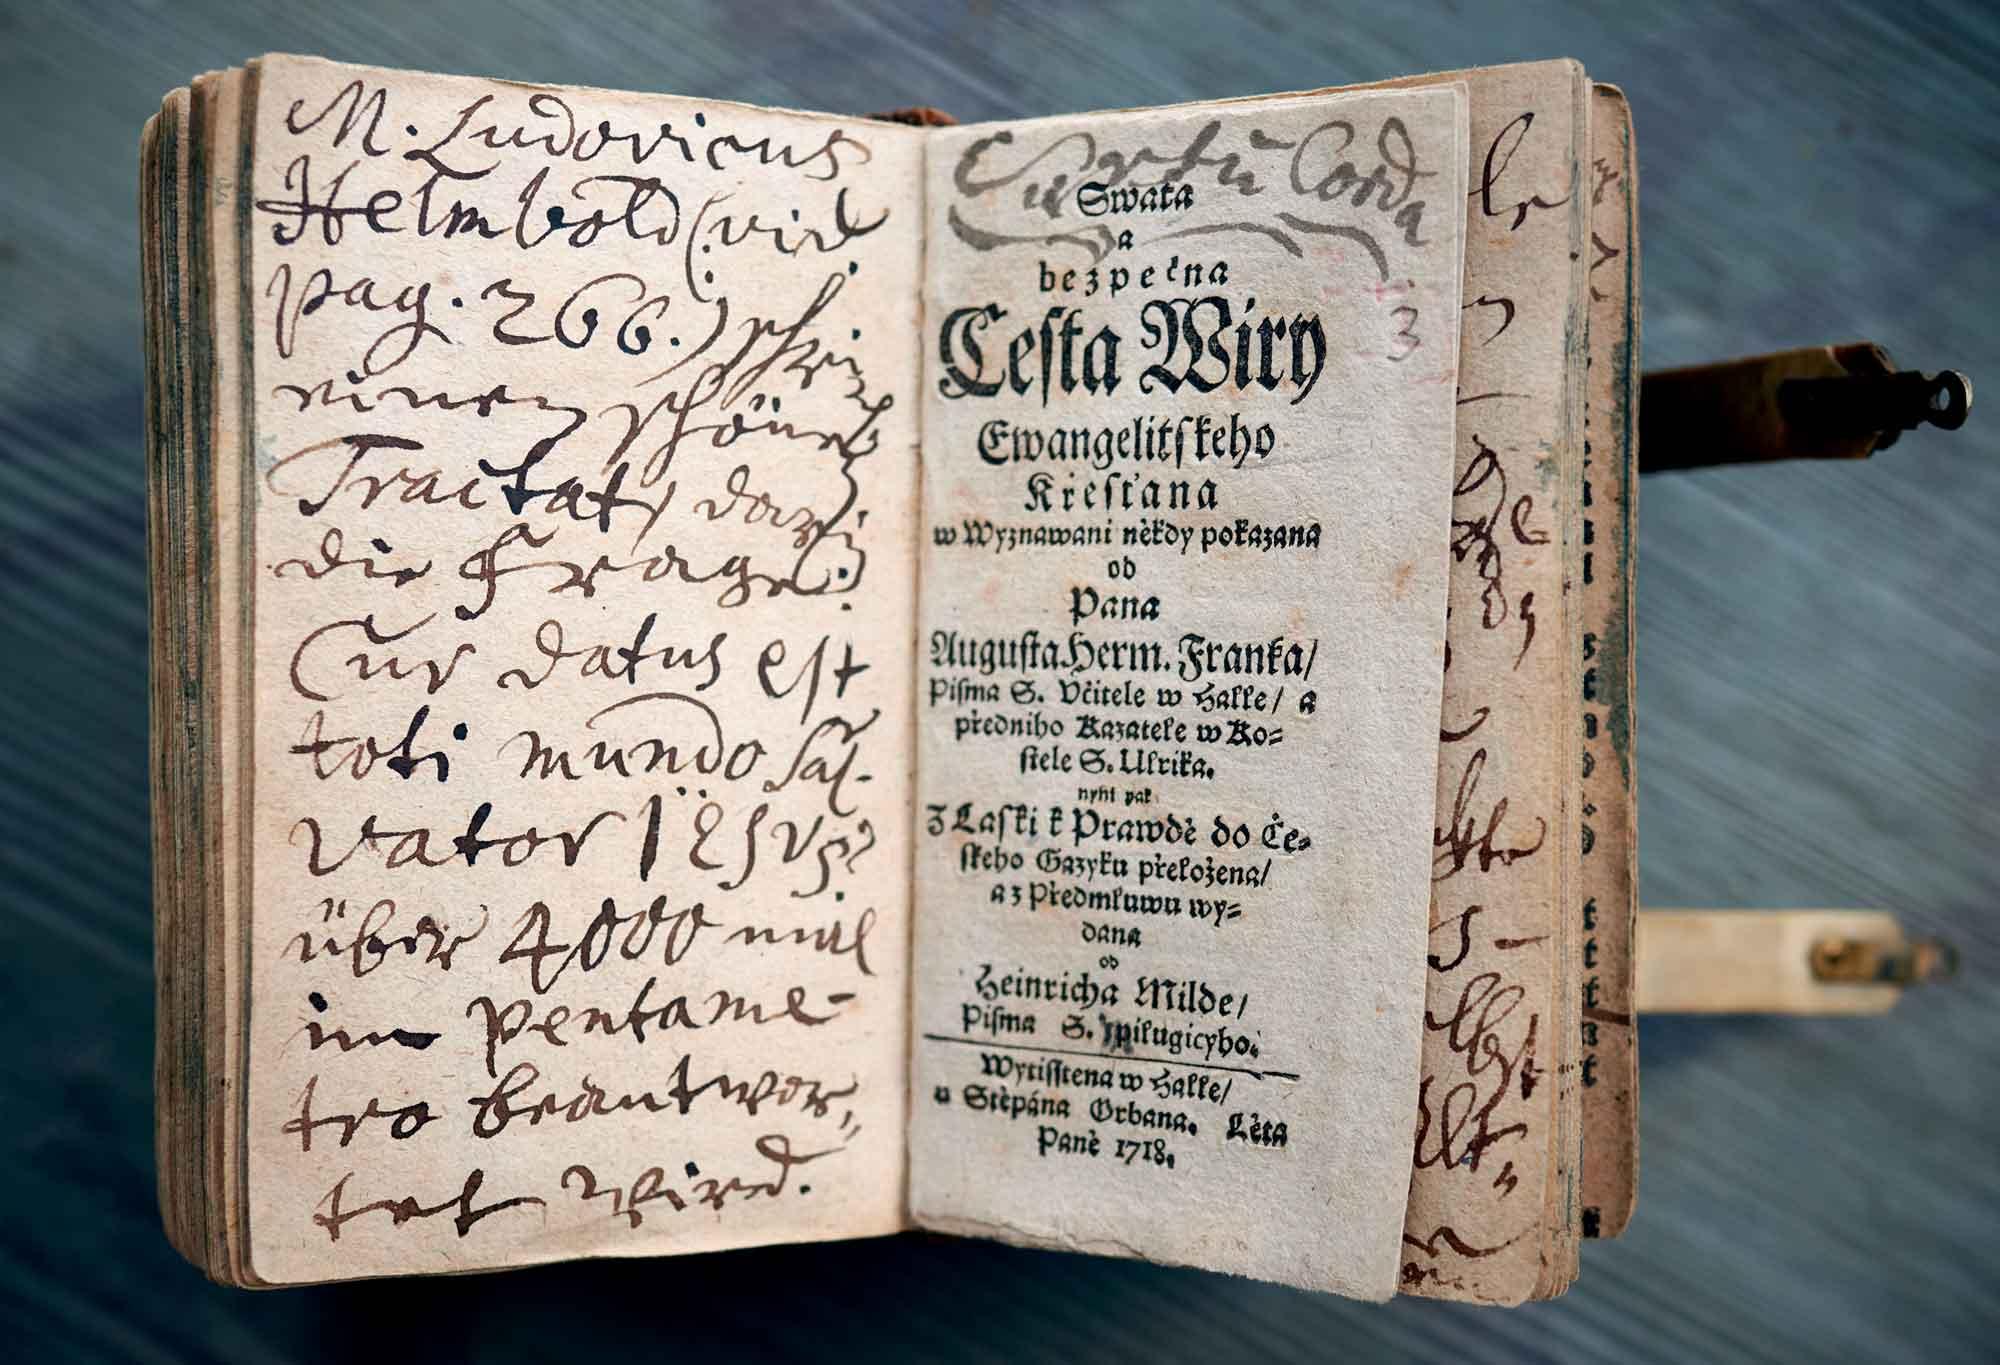 M. Ludovicus
Helmbold (vid.
pag. 266.) schri
einen schönen
Tractat, darin
die Frage:
Cur datus est
toti mundo Sal-
vator IESUS?
über 4000 mal
im Pentame-
tro beantwor-
tet wird.
Corda
Swata
a
bezpečna
Cesta Wiry
Ewangelitskeho
Křesťana
w Wyznawani někdy pokazana
od
Pana
Augusta Herm. Franka/
Pisma S. Včitele w Halle/ a
předniho Kazatele w Ko-
stele S. Ulrika.
nyni pak
Z Laski k Prawdě do Če-
skeho Gazyku přeložena/
a z Předmluwu wy-
dana
od
Heinricha Milde/
Pisma S. Milugicyho.
Wytisstena w Halle/
u Stěpána Orbana. Léta
Paně 1718.
3